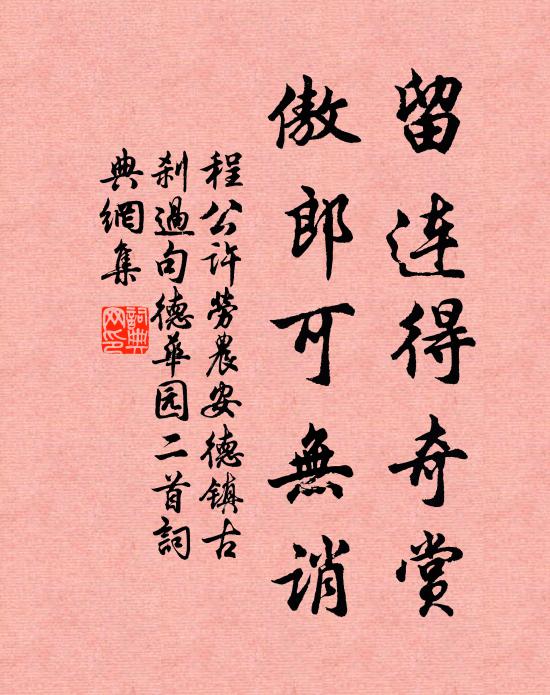 留连得奇赏
傲郎可無誚
程公许劳農安德镇古
刹過句德華园二首詞
典網集
詞典网印